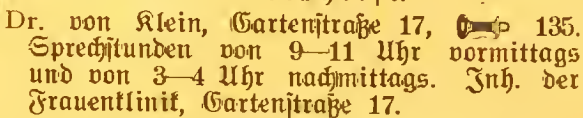 Dr. von Klein, Gartenstraße 17, 135.
Sprechstunden von 9—11 Uhr vormittags
und von 3—4 Uhr nachmittags. Inh. der
Frauenklinik, Gartenstraße 17.